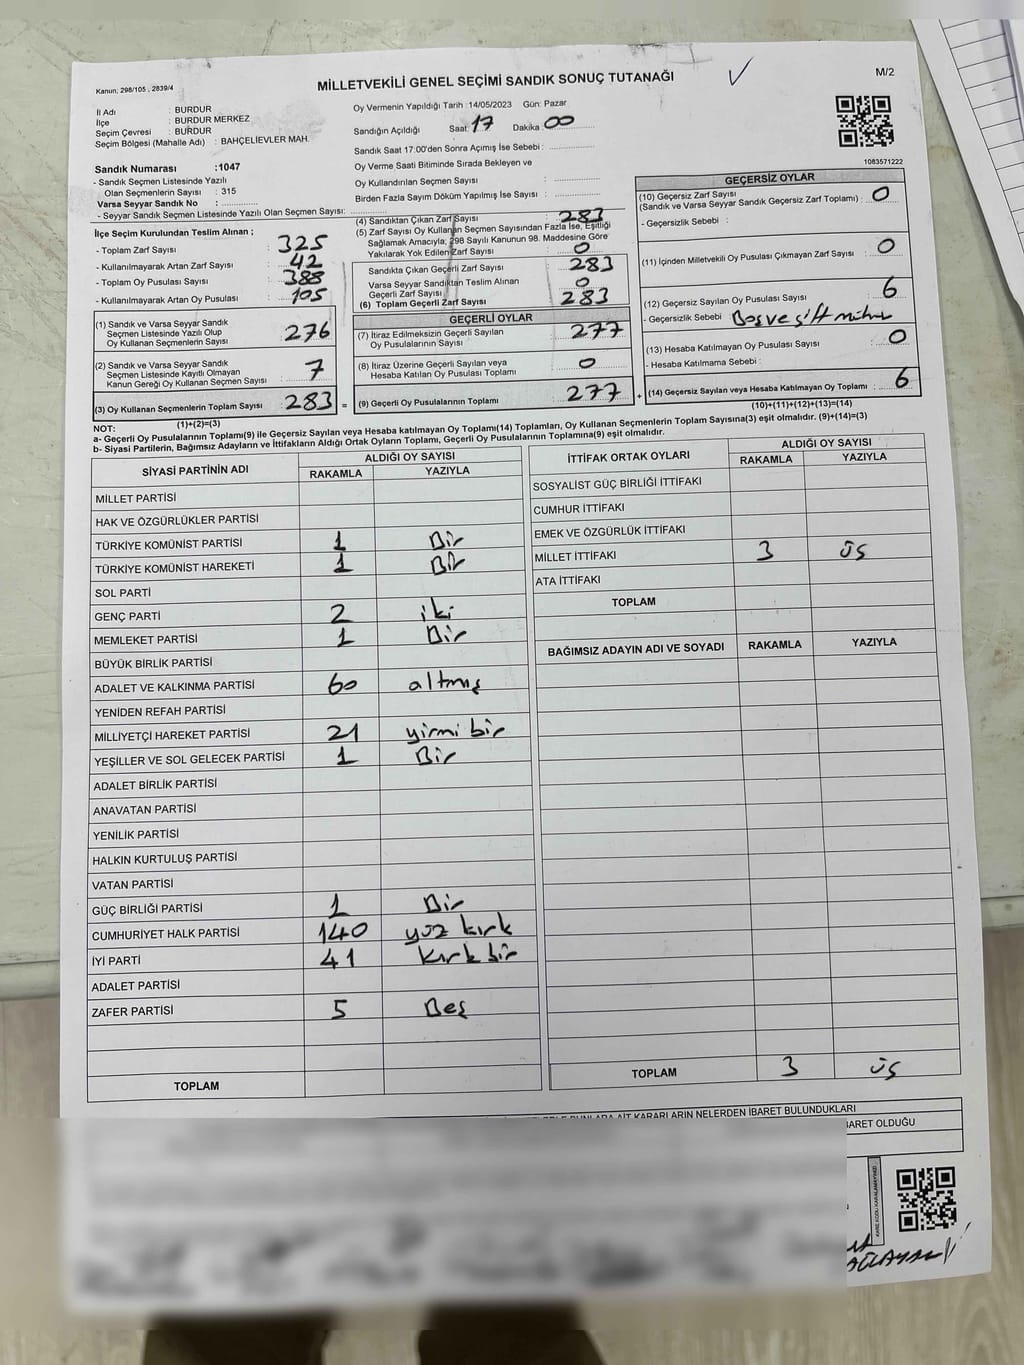 Kanun; 298/105 , 2839/4
MİLLETVEKİLİ GENEL SEÇİMİ SANDIK SONUÇ TUTANAĞI
M/2
İl Adı : BURDUR
İlçe : BURDUR MERKEZ
Seçim Çevresi : BURDUR
Seçim Bölgesi (Mahalle Adı) : BAHÇELİEVLER MAH.
Oy Vermenin Yapıldığı Tarih :14/05/2023 Gün: Pazar
Sandığın Açıldığı Saat: 17 Dakika 00
Sandık Saat 17:00'den Sonra Açımış İse Sebebi :
Oy Verme Saati Bitiminde Sırada Bekleyen ve
Oy Kullandırılan Seçmen Sayısı :
Birden Fazla Sayım Döküm Yapılmış İse Sayısı :
1083571222
Sandık Numarası :1047
- Sandık Seçmen Listesinde Yazılı
Olan Seçmenlerin Sayısı : 315
Varsa Seyyar Sandık No :
- Seyyar Sandık Seçmen Listesinde Yazılı Olan Seçmen Sayısı:
İlçe Seçim Kurulundan Teslim Alınan ;
- Toplam Zarf Sayısı : 325
- Kullanılmayarak Artan Zarf Sayısı : 42
- Toplam Oy Pusulası Sayısı : 388
- Kullanılmayarak Artan Oy Pusulası : 105
(1) Sandık ve Varsa Seyyar Sandık
Seçmen Listesinde Yazılı Olup
Oy Kullanan Seçmenlerin Sayısı : 276
(2) Sandık ve Varsa Seyyar Sandık
Seçmen Listesinde Kayıtlı Olmayan
Kanun Gereği Oy Kullanan Seçmen Sayısı : 7
(3) Oy Kullanan Seçmenlerin Toplam Sayısı : 283 =
(1)+(2)=(3)
(4) Sandıktan Çıkan Zarf Sayısı : 283
(5) Zarf Sayısı Oy Kullanan Seçmen Sayısından Fazla İse, Eşitliği
Sağlamak Amacıyla, 298 Sayılı Kanunun 98. Maddesine Göre
Yakılarak Yok Edilen Zarf Sayısı : 0
Sandıkta Çıkan Geçerli Zarf Sayısı : 283
Varsa Seyyar Sandıktan Teslim Alınan
Geçerli Zarf Sayısı : 0
(6) Toplam Geçerli Zarf Sayısı : 283
GEÇERLİ OYLAR
(7) İtiraz Edilmeksizin Geçerli Sayılan
Oy Pusulalarının Sayısı : 277
(8) İtiraz Üzerine Geçerli Sayılan veya
Hesaba Katılan Oy Pusulası Toplamı : 0
(9) Geçerli Oy Pusulalarının Toplamı : 277 +
GEÇERSİZ OYLAR
(10) Geçersiz Zarf Sayısı
(Sandık ve Varsa Seyyar Sandık Geçersiz Zarf Toplamı) : 0
- Geçersizlik Sebebi :
(11) İçinden Milletvekili Oy Pusulası Çıkmayan Zarf Sayısı : 0
(12) Geçersiz Sayılan Oy Pusulası Sayısı : 6
- Geçersizlik Sebebi : Boş ve çift mühür
(13) Hesaba Katılmayan Oy Pusulası Sayısı : 0
- Hesaba Katılmama Sebebi :
(14) Geçersiz Sayılan veya Hesaba Katılmayan Oy Toplamı : 6
(10)+(11)+(12)+(13)=(14)
NOT:
a- Geçerli Oy Pusulalarının Toplamı(9) ile Geçersiz Sayılan veya Hesaba katılmayan Oy Toplamı(14) Toplamları, Oy Kullanan Seçmenlerin Toplam Sayısına(3) eşit olmalıdır. (9)+(14)=(3)
b- Siyasi Partilerin, Bağımsız Adayların ve İttifakların Aldığı Ortak Oyların Toplamı, Geçerli Oy Pusulalarının Toplamına(9) eşit olmalıdır.
SİYASİ PARTİNİN ADI ALDIĞI OY SAYISI
RAKAMLA YAZIYLA
MİLLET PARTİSİ
HAK VE ÖZGÜRLÜKLER PARTİSİ
TÜRKİYE KOMÜNİST PARTİSİ 1 Bir
TÜRKİYE KOMÜNİST HAREKETİ 1 Bir
SOL PARTİ
GENÇ PARTİ 2 iki
MEMLEKET PARTİSİ 1 Bir
BÜYÜK BİRLİK PARTİSİ
ADALET VE KALKINMA PARTİSİ 60 altmış
YENİDEN REFAH PARTİSİ
MİLLİYETÇİ HAREKET PARTİSİ 21 yirmi bir
YEŞİLLER VE SOL GELECEK PARTİSİ 1 Bir
ADALET BİRLİK PARTİSİ
ANAVATAN PARTİSİ
YENİLİK PARTİSİ
HALKIN KURTULUŞ PARTİSİ
VATAN PARTİSİ
GÜÇ BİRLİĞİ PARTİSİ 1 Bir
CUMHURİYET HALK PARTİSİ 140 yüz kırk
İYİ PARTİ 41 Kırk bir
ADALET PARTİSİ
ZAFER PARTİSİ 5 Beş
TOPLAM
İTTİFAK ORTAK OYLARI ALDIĞI OY SAYISI
RAKAMLA YAZIYLA
SOSYALİST GÜÇ BİRLİĞİ İTTİFAKI
CUMHUR İTTİFAKI
EMEK VE ÖZGÜRLÜK İTTİFAKI
MİLLET İTTİFAKI 3 üç
ATA İTTİFAKI
TOPLAM
BAĞIMSIZ ADAYIN ADI VE SOYADI RAKAMLA YAZIYLA
TOPLAM 3 üç
KARARLARIN NELERDEN İBARET BULUNDUKLARI
İBARET OLDUĞU